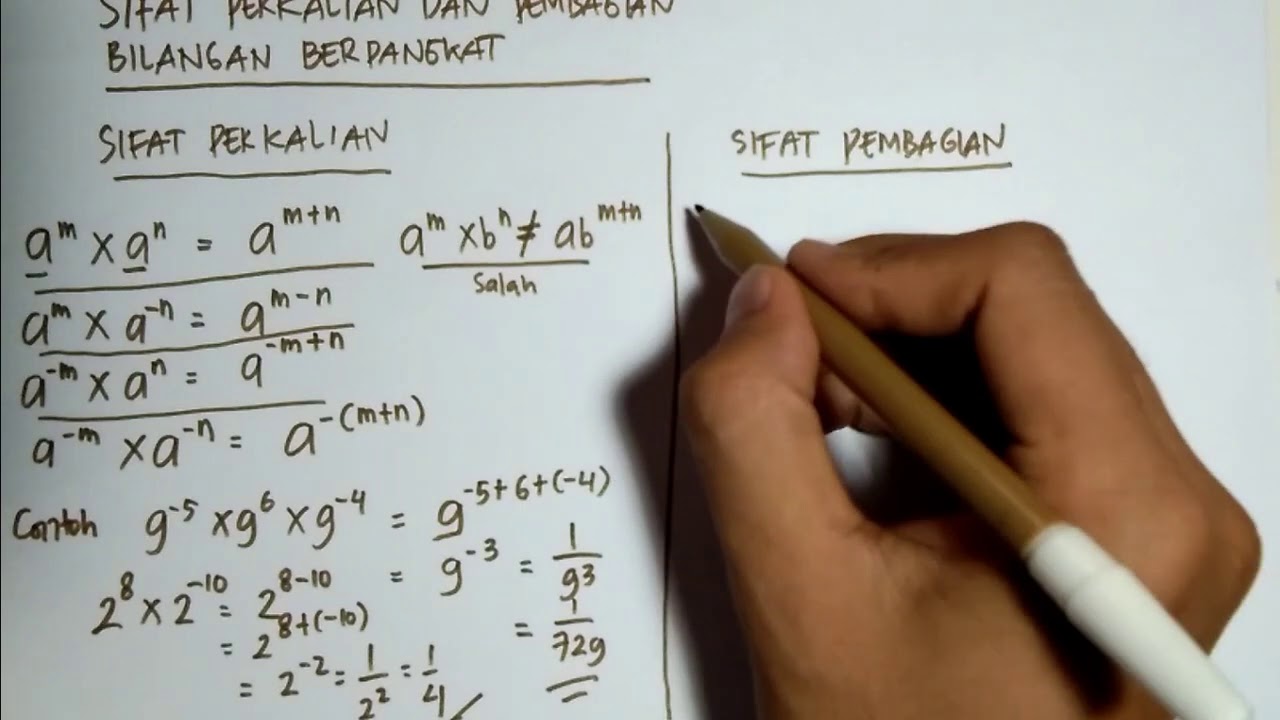 SIFAT PERKALIAN DAN PEMBAGIAN
BILANGAN BERPANGKAT
SIFAT PERKALIAN
aᵐ × aⁿ = aᵐ⁺ⁿ
aᵐ × bⁿ ≠ abᵐ⁺ⁿ
Salah
aᵐ × a⁻ⁿ = aᵐ⁻ⁿ
a⁻ᵐ × aⁿ = a⁻ᵐ⁺ⁿ
a⁻ᵐ × a⁻ⁿ = a⁻⁽ᵐ⁺ⁿ⁾
Contoh 9⁻⁵ × 9⁶ × 9⁻⁴ = 9⁻⁵⁺⁶⁺⁽⁻⁴⁾
= 9⁻³ = 1/9³
= 1/729
2⁸ × 2⁻¹⁰ = 2⁸⁻¹⁰
= 2⁸⁺⁽⁻¹⁰⁾
= 2⁻² = 1/2² = 1/4
SIFAT PEMBAGIAN